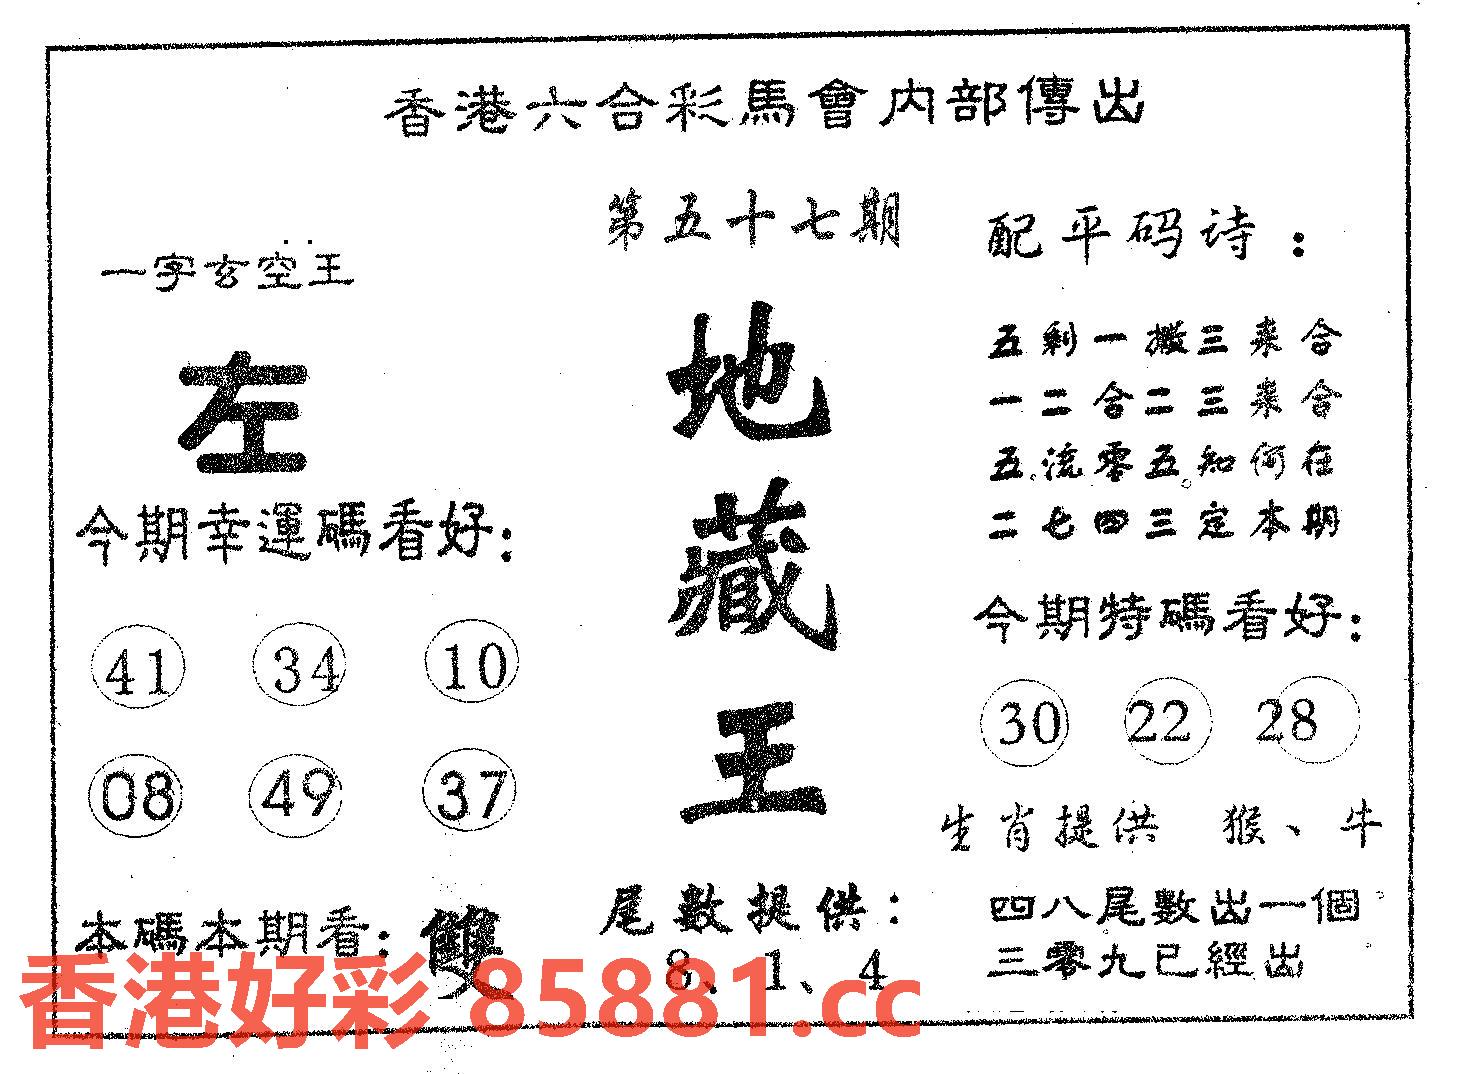 香港六合彩馬會内部傳出
第五十七期
一字玄空王
左
今期幸運碼看好:
41 34 10
08 49 37
本碼本期看: 雙
地
藏
王
尾數提供:
8、1、4
配平码诗:
五剩一搬三来合
一二合二三来合
五流零五知何在
二七四三定本期
今期特碼看好:
30 22 28
生肖提供 猴、牛
四八尾數出一個
三零九已經出
香港好彩 85881.cc